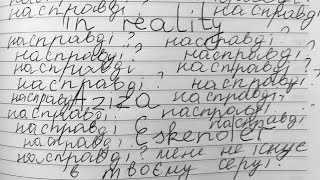 насправді ? насправді
In reality
насправді ? насправді ?
насправді ? насправді ?
насправді ? насправді ?
насправді ? насправді ?
насправді Aziza насправді
насправді насправді
насправді Eskender насправді
насправді
насправді ? мене не існує
в твоєму серці